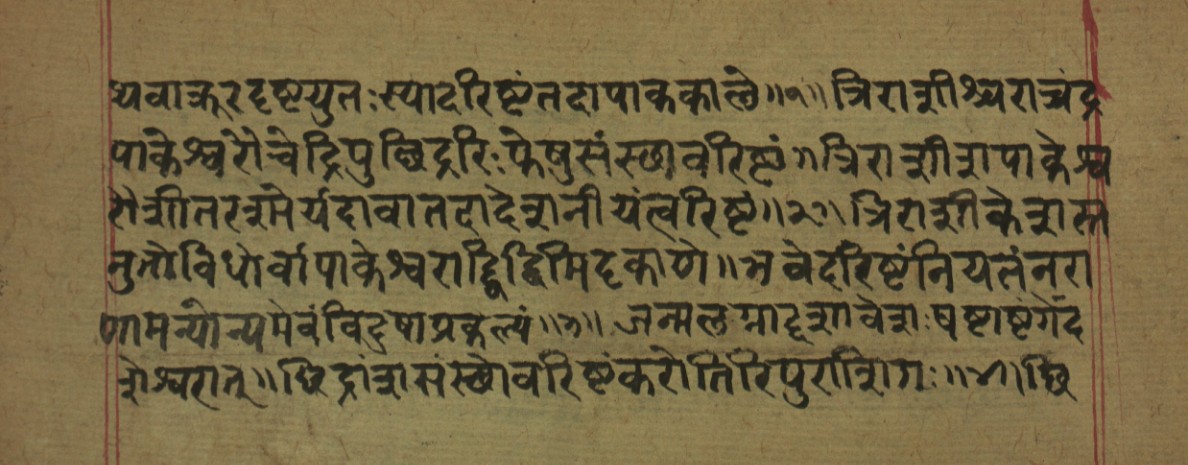 थवाक्रूरदृष्टयुतः स्यादरिष्टंतदापाककाले॥१॥त्रिराशीश्वराच्चंद्र
पाकेश्वरोचेद्रिपुछिद्ररिःफेषुसंस्थावरिष्टं॥त्रिराशीशपाकेश्व
रौशीतरश्मेर्यदावातदादेशनीयंत्वरिष्टं॥२॥त्रिराशीकेशस्त
नुतोविधोर्वापाकेश्वराद्द्विद्विमिदृकाणे॥भवेदरिष्टंनियतंनरा
णामन्योन्यमेवंविदुषाप्रकल्प्यं॥३॥जन्मलग्नादृशावेशःषष्टाष्टंगेंद
शेश्वरात्॥छिद्रांशसंस्थोवरिष्टंकरोतिरिपुराशिगः॥४॥छि